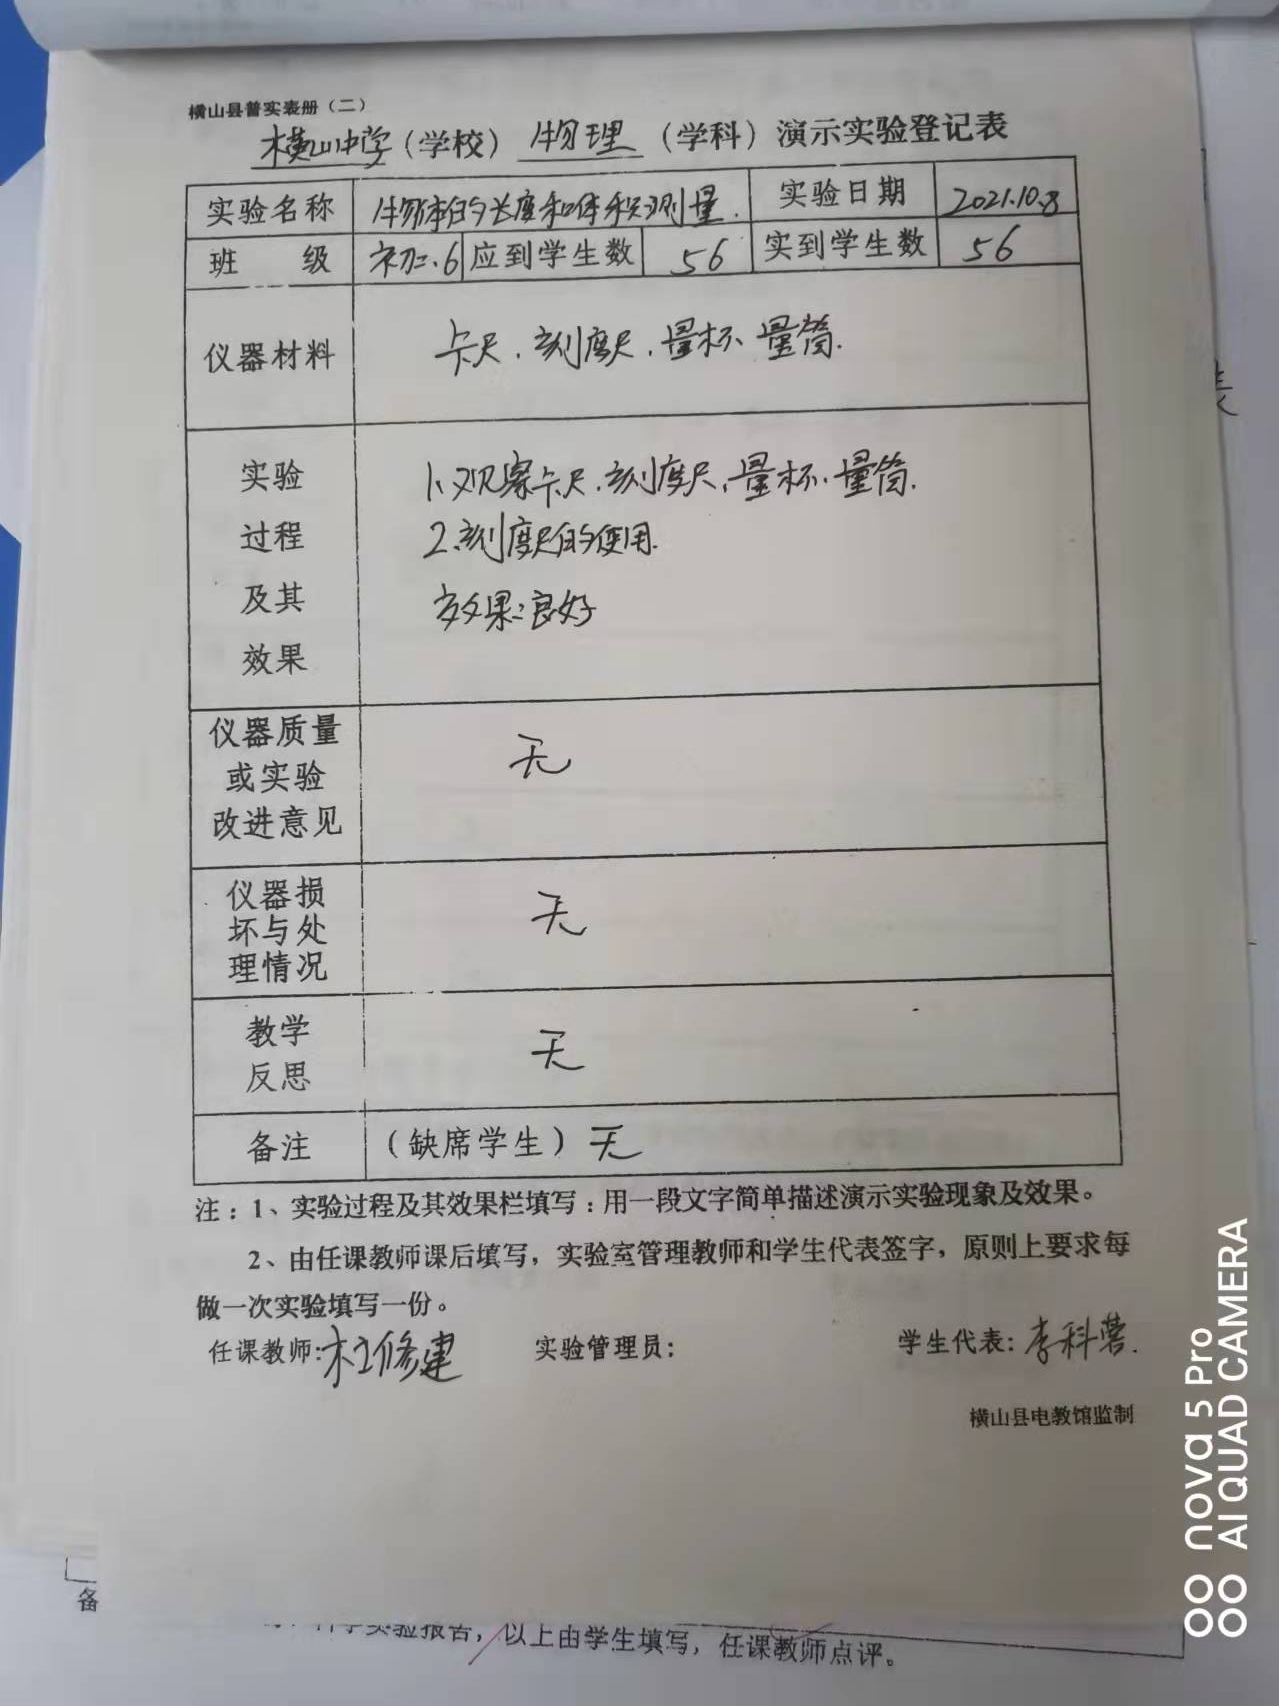 横山县普实表册（二）
横山中学（学校） 物理 （学科）演示实验登记表
实验名称 物体的长度和体积测量. 实验日期 2021.10.8
班 级 初二.6 应到学生数 56 实到学生数 56
仪器材料 卡尺、刻度尺、量杯、量筒.
实验
过程
及其
效果
1、观察卡尺、刻度尺、量杯、量筒.
2、刻度尺的使用.
效果：良好
仪器质量
或实验
改进意见
无
仪器损
坏与处
理情况
无
教学
反思
无
备注 （缺席学生）无
注：1、实验过程及其效果栏填写：用一段文字简单描述演示实验现象及效果。
2、由任课教师课后填写，实验室管理教师和学生代表签字，原则上要求每
做一次实验填写一份。
任课教师: 杜修建 实验管理员： 学生代表：李科蓉.
横山县电教馆监制
备
实验报告，以上由学生填写，任课教师点评。
表
nova 5 Pro
AI QUAD CAMERA